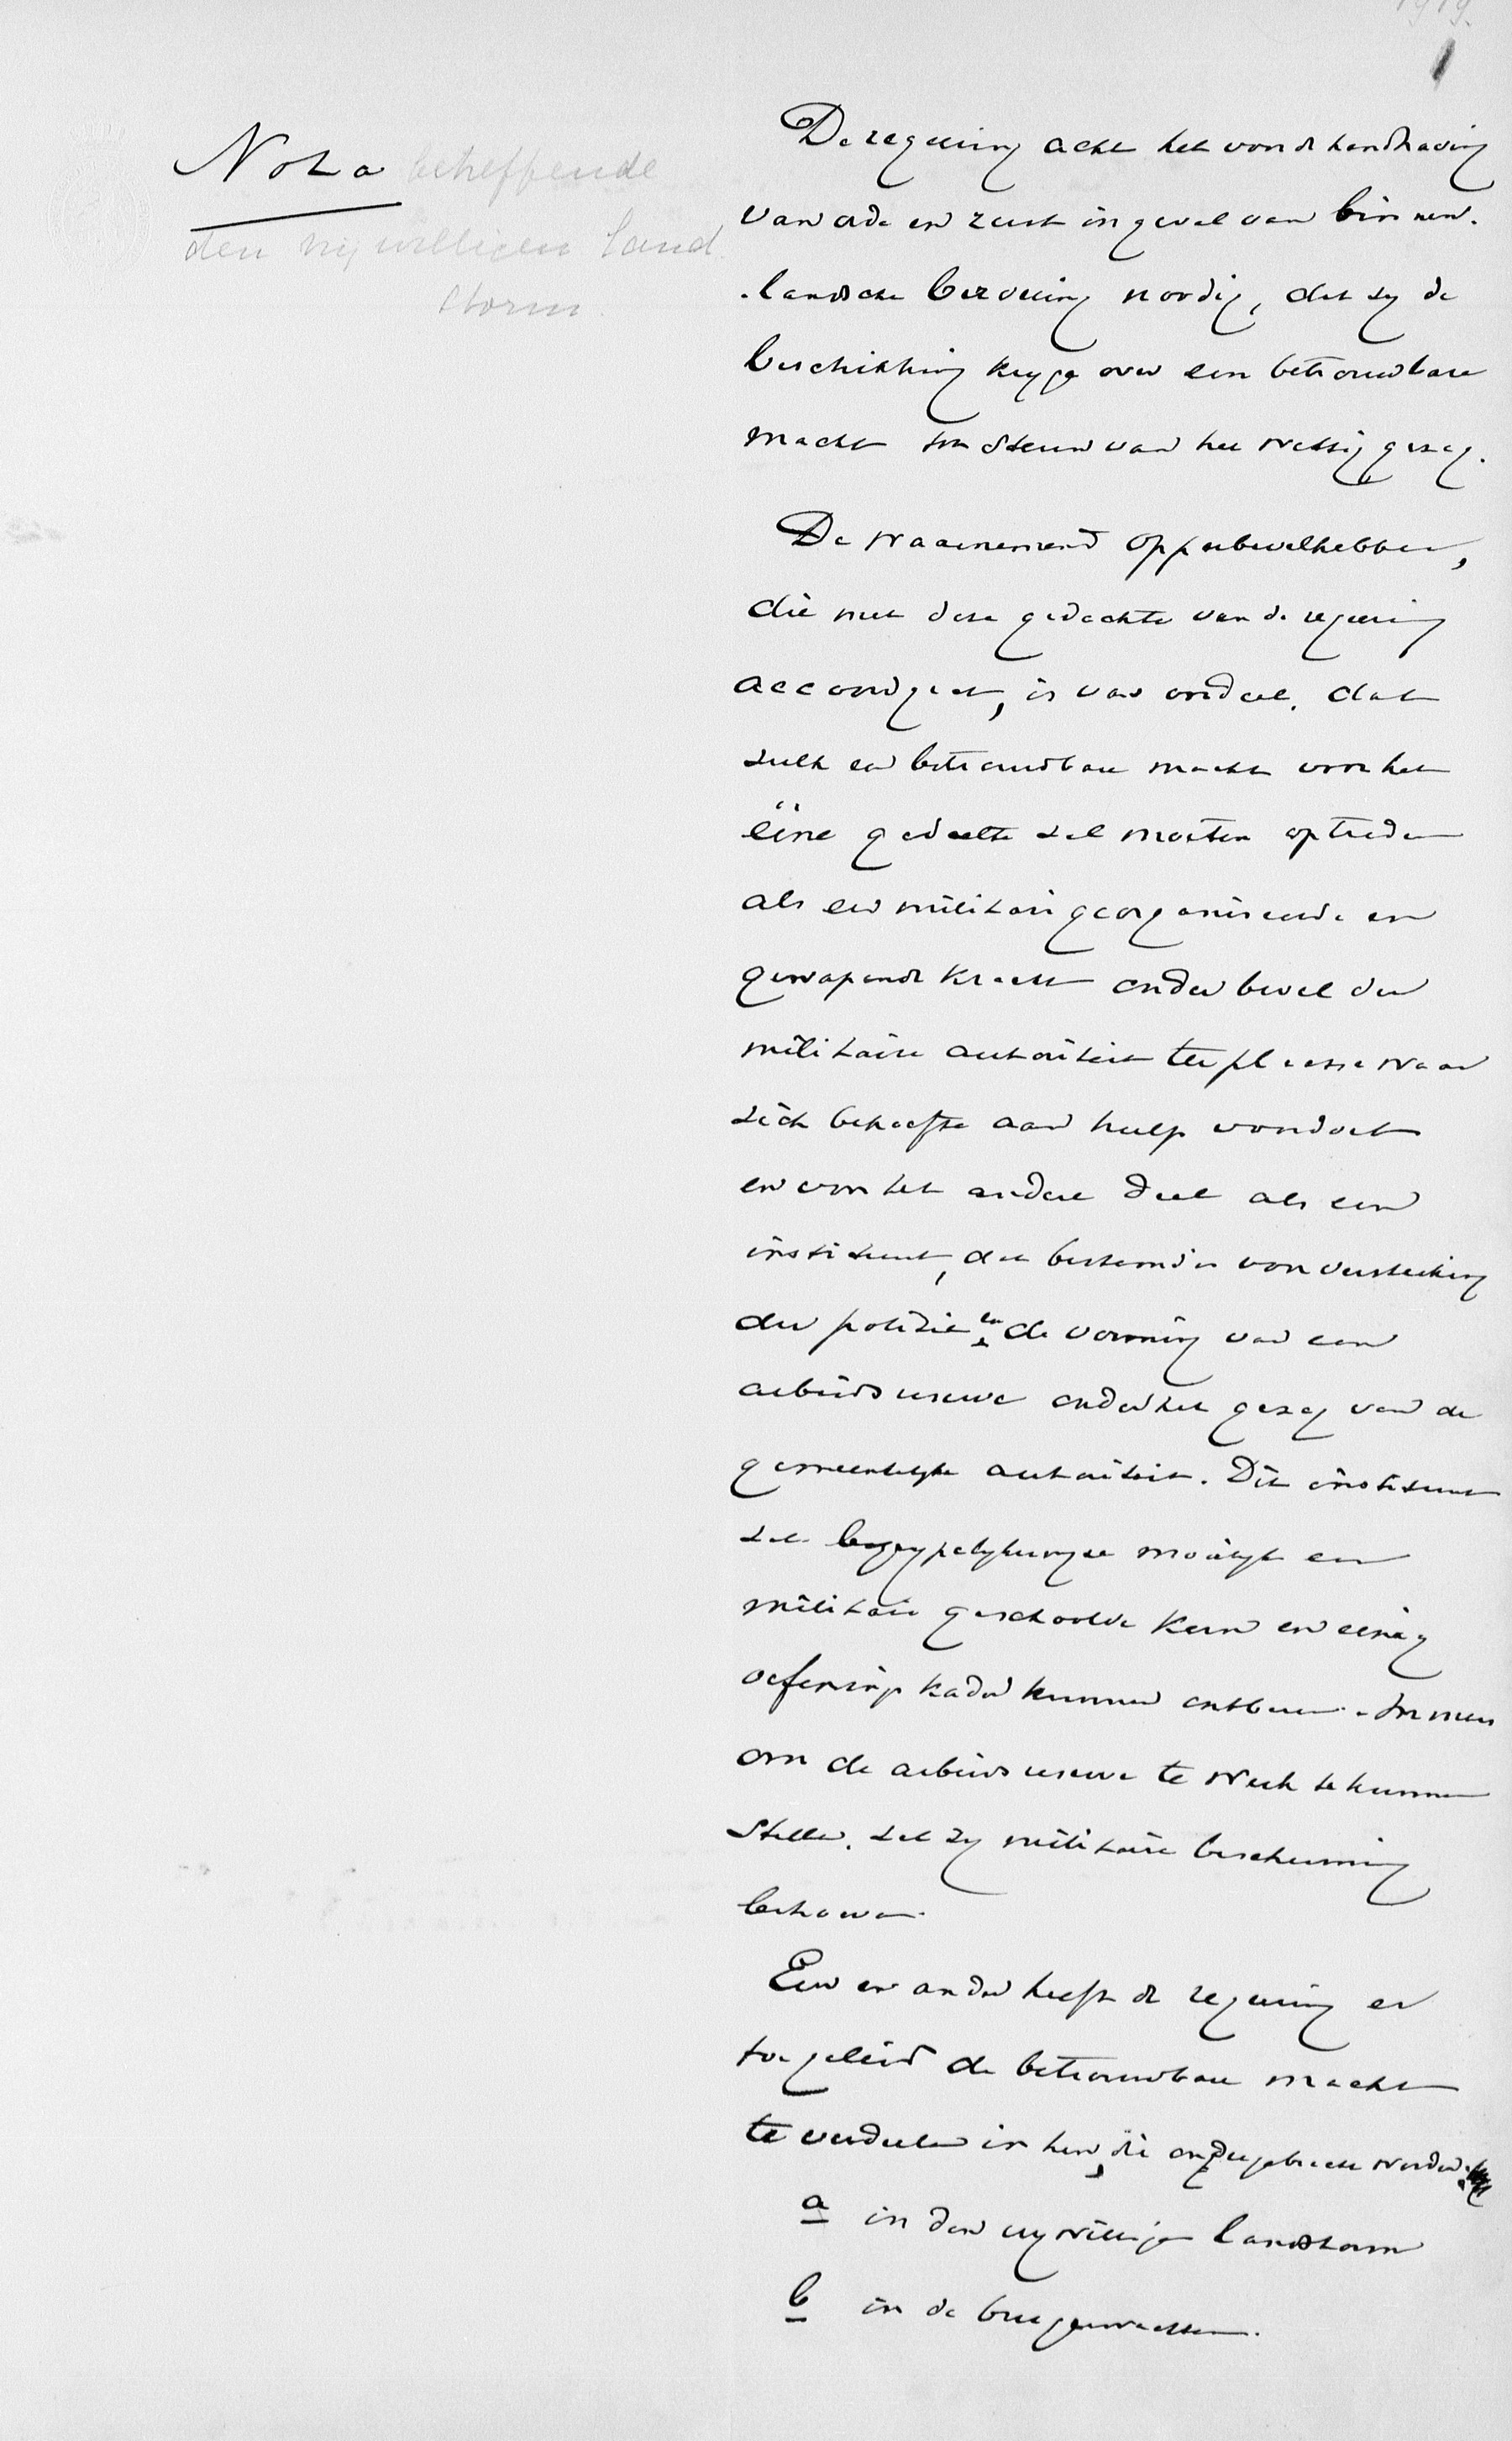 1919.
Nota betreffende
den vrijwilligen land
storm.
De regeering acht het voor de handhaving
van orde en rust in geval van binnen-
-landsche beroering noodig, dat zij de
beschikking krijge over een betrouwbare
macht ten steun van het wettig gezag.
De waarnemend opperbevelhebber,
die met deze gedachte van de regeering
accoord gaat, is van oordeel, dat
zulk een betrouwbare macht voor het
ééne gedeelte zal moeten optreden
als een militair georganiseerde en
gewapende kracht onder bevel der
militaire autoriteit ter plaatse waar
zich behoefte aan hulp voordoet
en voor het andere deel als een
instituut, dat bestemd is voor versterking
der politie en de vorming van een
arbeidsreserve onder het gezag van de
gemeentelijke autoriteit. Dit instituut
zal begrijpelijkerwijze moeilijk een
militair geschoolde kern en eenig
oefeningskader kunnen ontberen.
om de arbeidsreserve te werk te kunnen
stellen, zal zij militaire bescherming
behoeven.
Een en ander heeft de regeering er
toe geleid de betrouwbare macht
te verdeelen in hen, die ondergebracht worden:
a in den vrijwilligen landstorm
b in de burgerwachten.